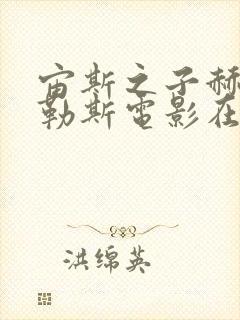 宙斯之子赫
勒斯电影在
洪绵英